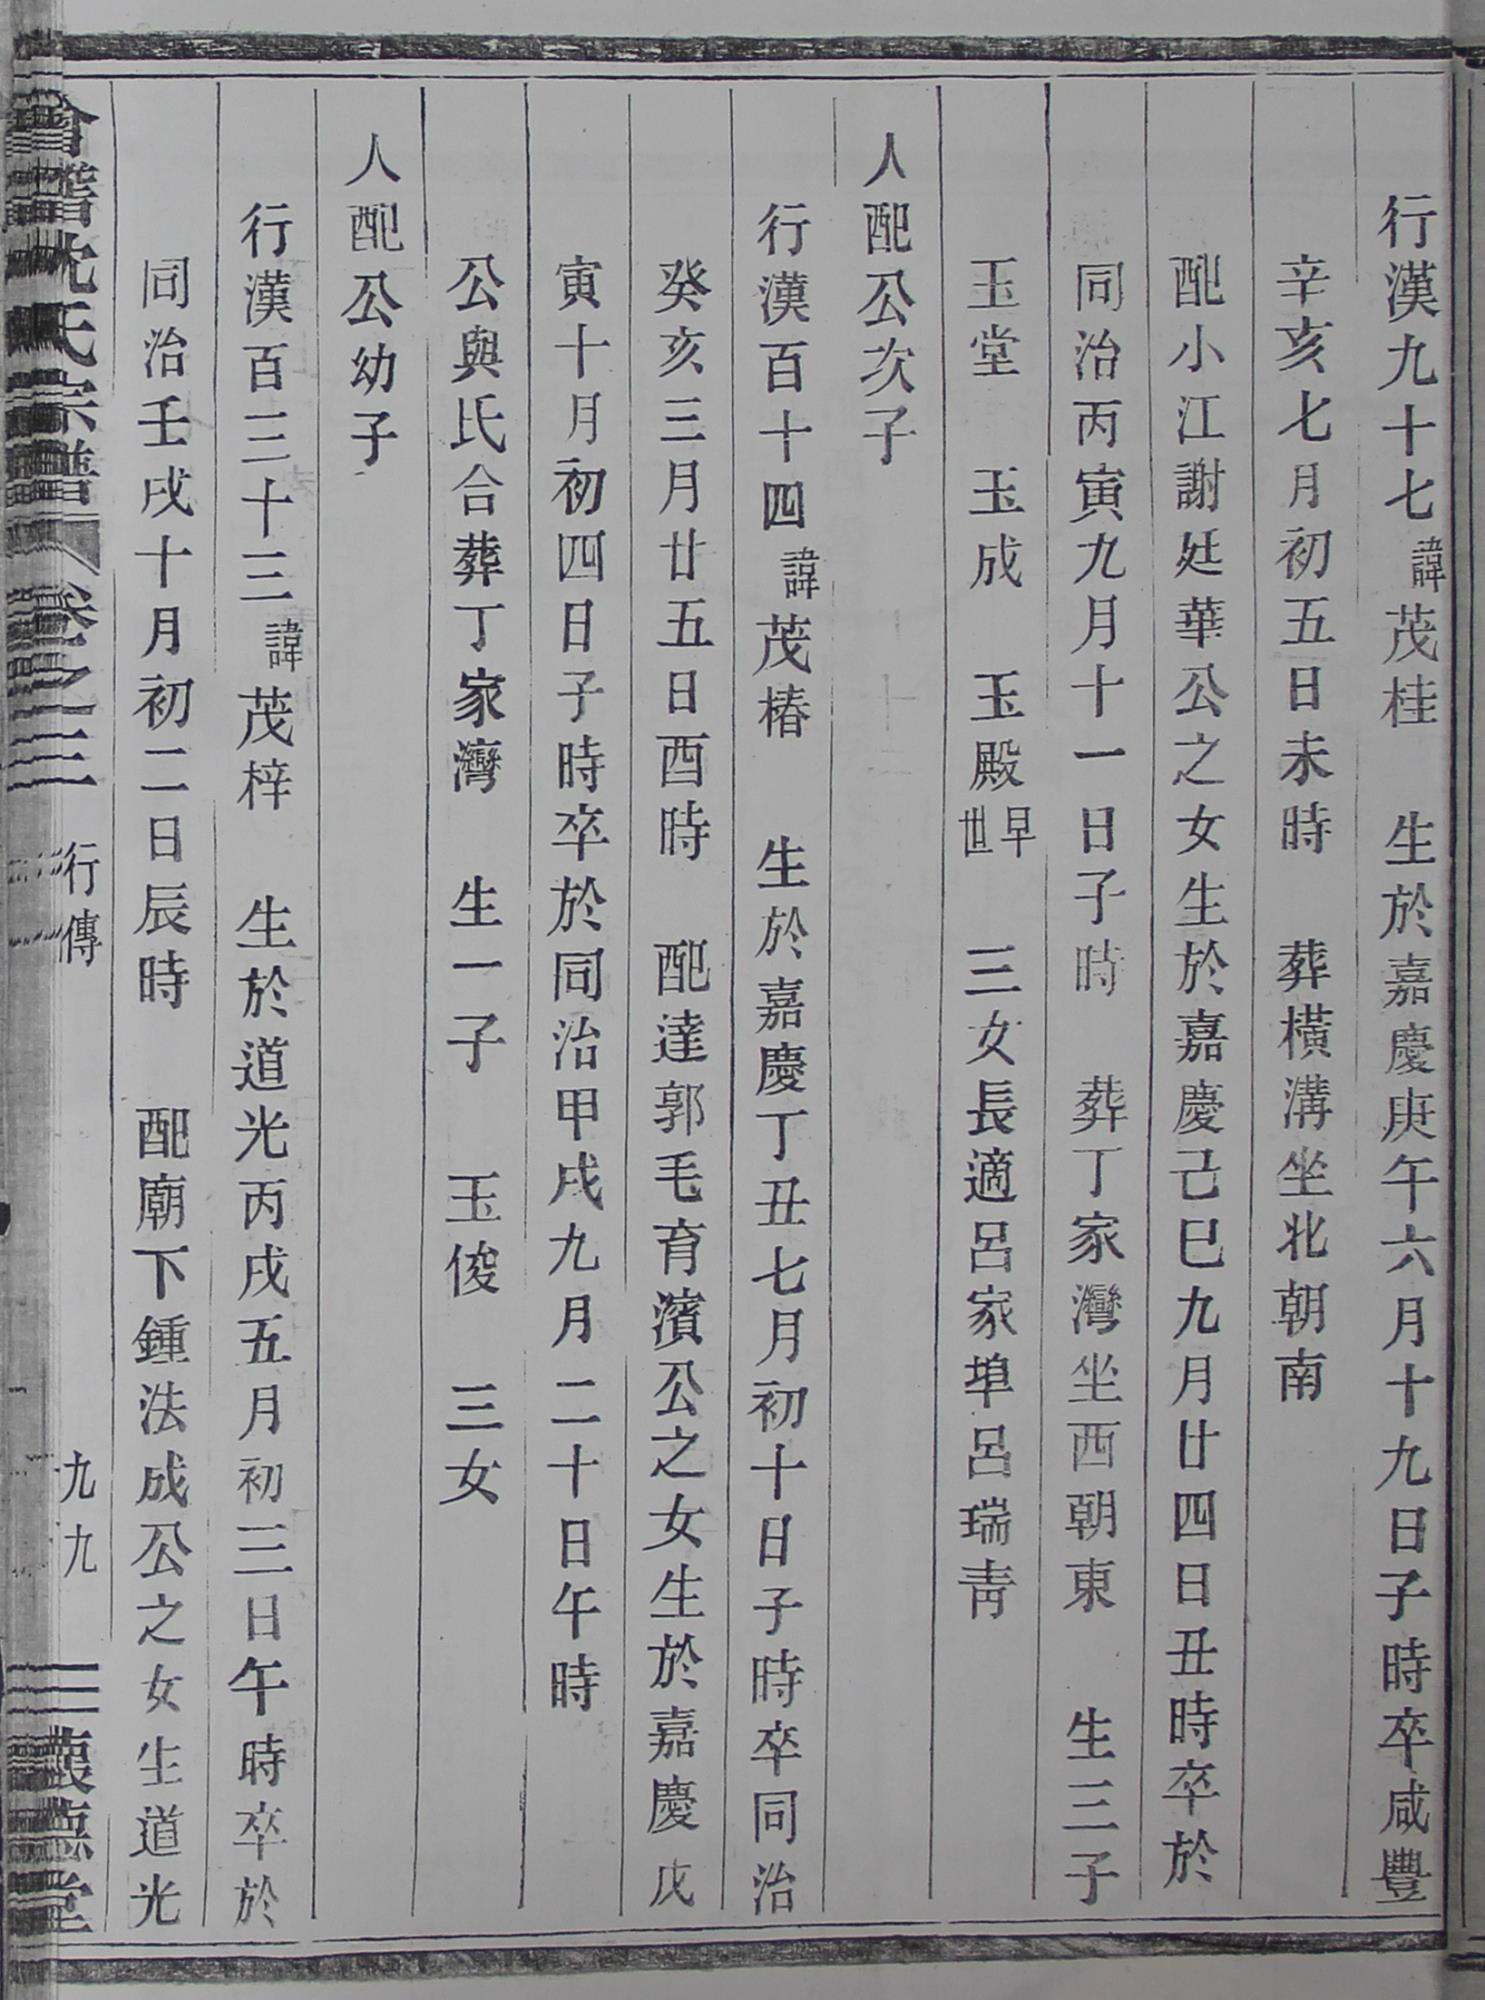 行漢九十七諱茂桂　生於嘉慶庚午六月十九日子時卒咸豐
辛亥七月初五日未時　葬橫溝坐北朝南
配小江謝廷華公之女生於嘉慶己巳九月廿四日丑時卒於
同治丙寅九月十一日子時　葬丁家灣坐西朝東　生三子
玉堂　玉成　玉殿早世　三女長適呂家埠呂瑞青
人配公次子
行漢百十四諱茂椿　生於嘉慶丁丑七月初十日子時卒同治
癸亥三月廿五日酉時　配達郭毛育濱公之女生於嘉慶戊
寅十月初四日子時卒於同治甲戌九月二十日午時
公與氏合葬丁家灣　生一子　玉俊　三女
人配公幼子
行漢百三十三諱茂梓　生於道光丙戌五月初三日午時卒於
同治壬戌十月初二日辰時　配廟下鍾法成公之女生道光
會稽沈氏宗譜　卷之三　行傳　九九　懷德堂